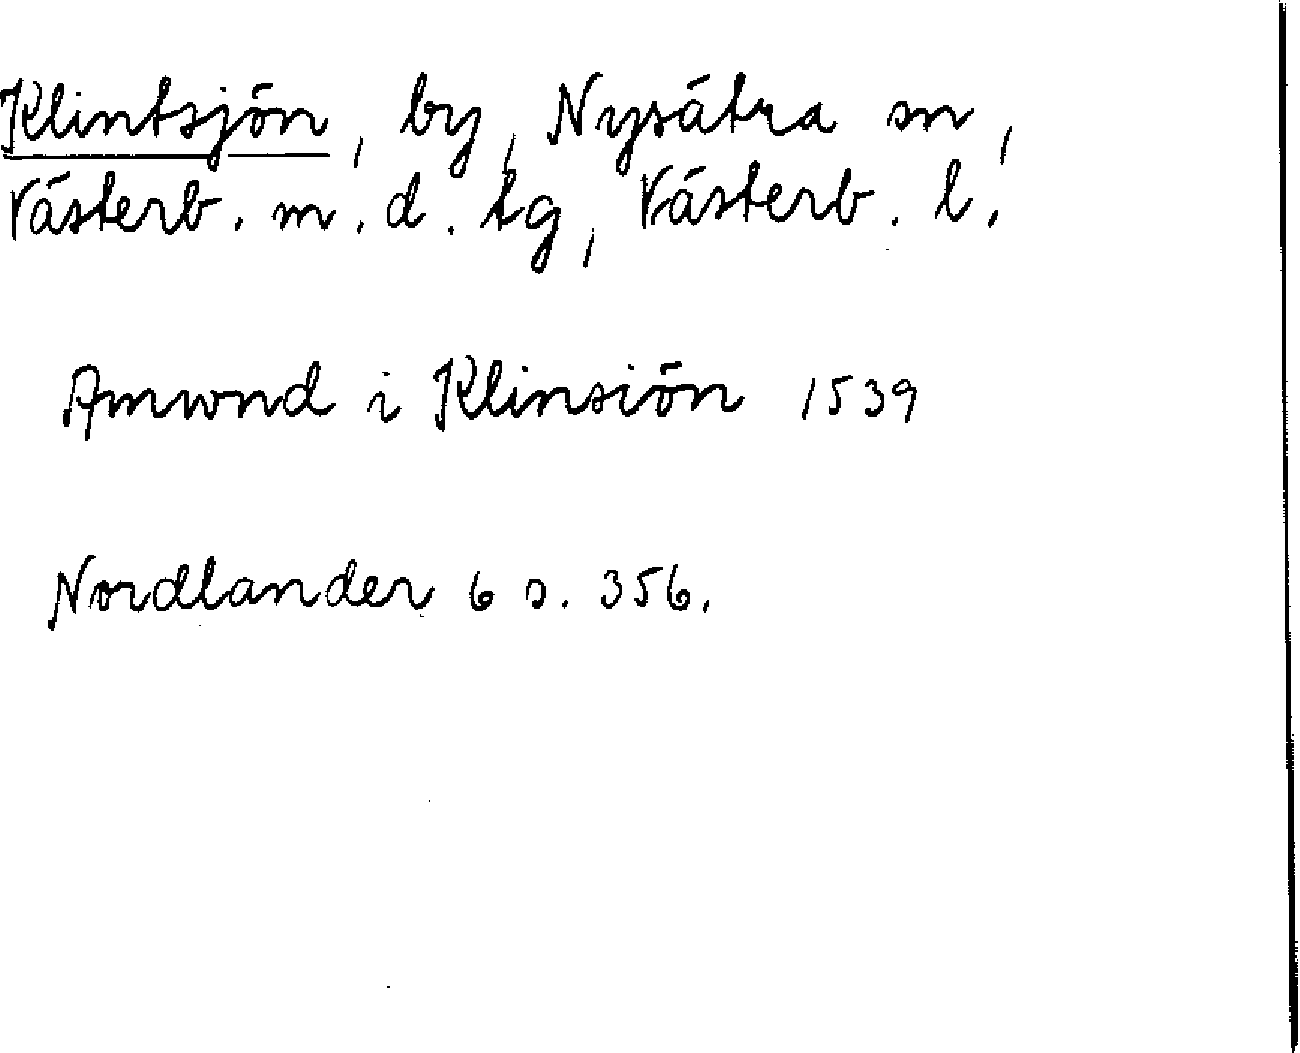 Klintsjön, by, Nysätra sn,
Västerb. m. d. tg, Västerb. l.
Amwnd i Klinsiön 1539
Nordlander 6 s. 356.